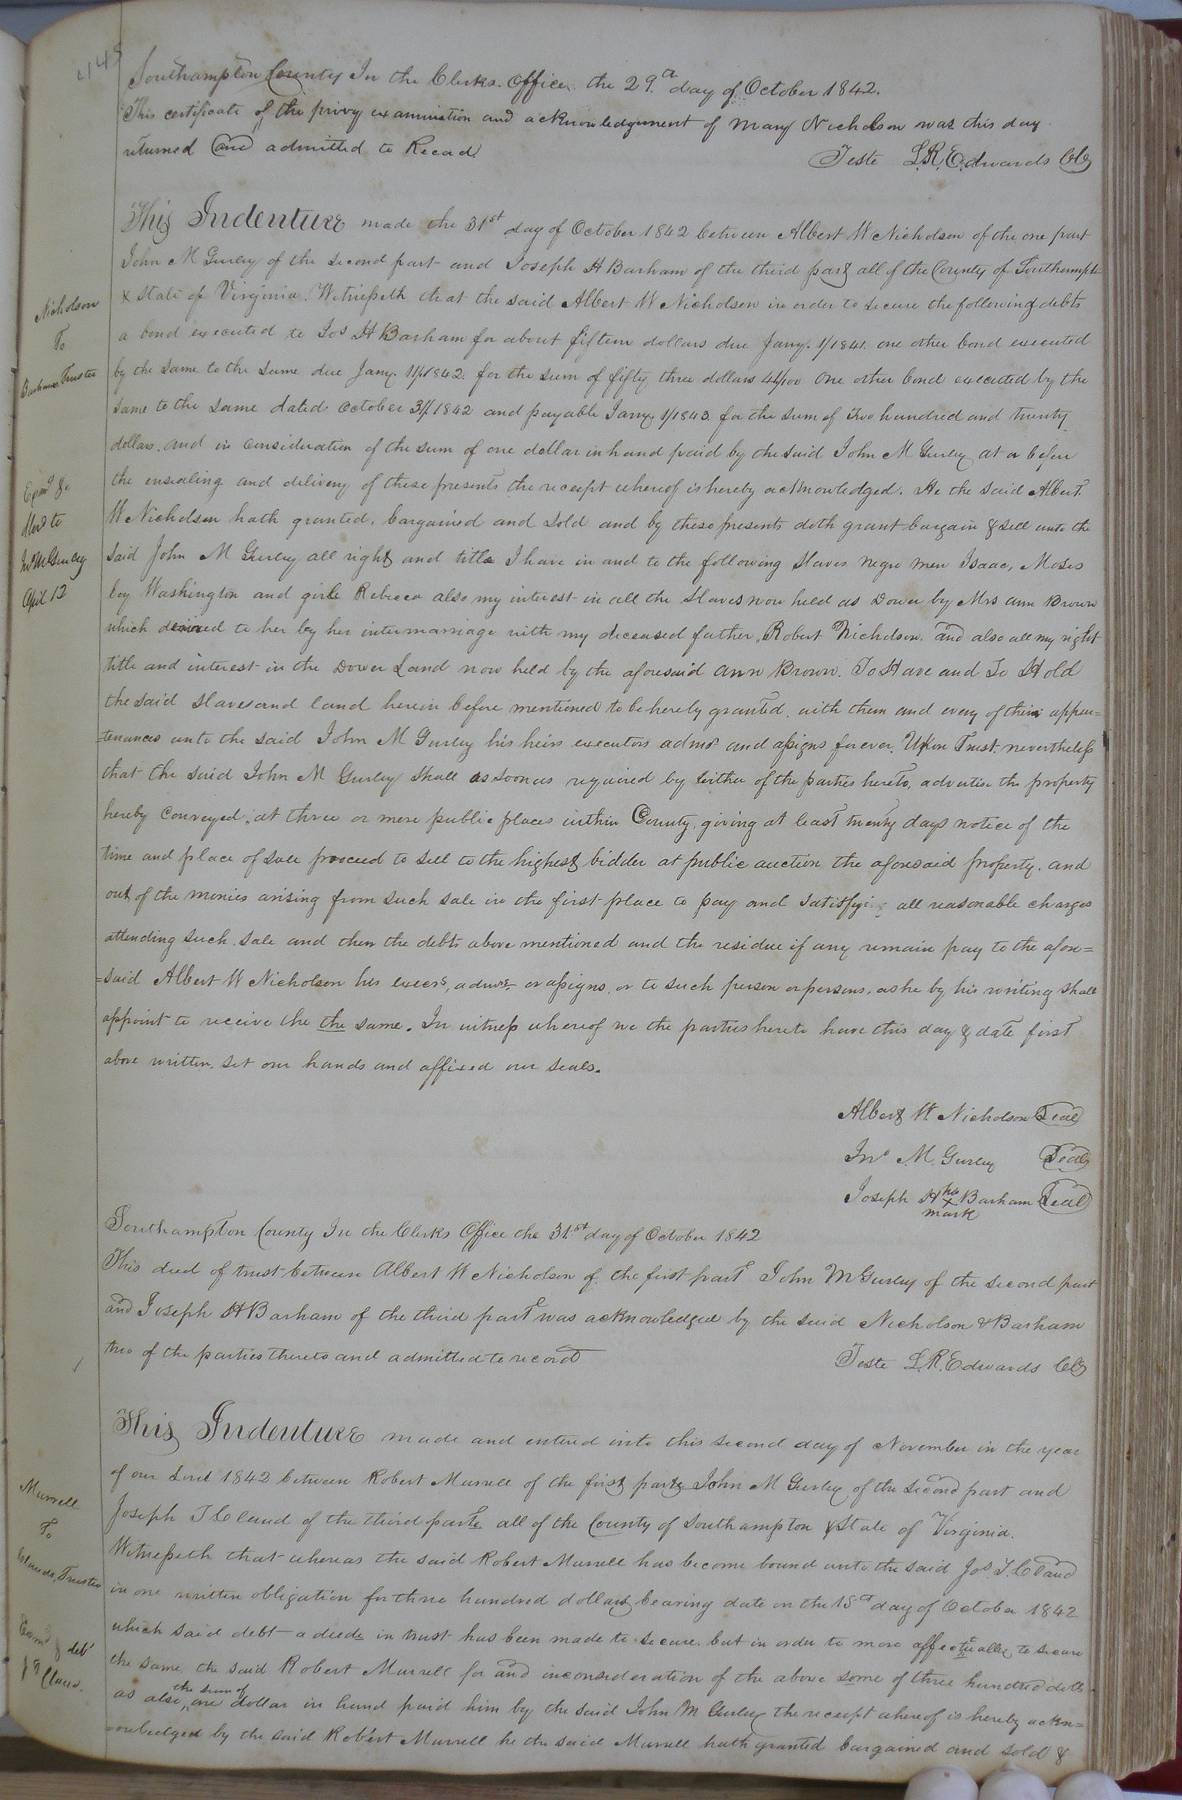 445
Southampton County In the Clerks Office the 29th day of October 1842.
This certificate of the privy examination and acknowledgment of Mary Nicholson was this day
returned and admitted to Record
Teste L.R. Edwards Clk
This Indenture made the 31st day of October 1842 between Albert W Nicholson of the one part
John M Gurley of the second part and Joseph H Barham of the third part all of the County of Southampt
& State of Virginia. Witnesseth that the said Albert W Nicholson in order to secure the following debts
a bond executed to Jos H Barham for about fifteen dollars due Jany. 1/1841. one other bond executed
by the same to the same due Jany. 1/1842. for the sum of fifty three dollars 44/100 One other bond executed by the
same to the same dated October 31/1842 and payable Jany 1/1843 for the sum of Two hundred and twenty
dollars. and in consideration of the sum of one dollar in hand paid by the said John M Gurley at or before
the ensealing and delivery of these presents the receipt whereof is hereby acknowledged. He the said Albert
W Nicholson hath granted, bargained and sold and by these presents doth grant bargain & sell unto the
said John M Gurley all right and title I have in and to the following Slaves negro men Isaac, Moses
boy Washington and girl Rebecca also my interest in all the Slaves now held as Dower by Mrs Ann Brown
which derived to her by her intermarriage with my deceased father, Robert Nicholson. and also all my right
title and interest in the Dower Land now held by the aforesaid Ann Brown. To Have and To Hold
the said Slaves and land herein before mentioned to be hereby granted. with them and every of their appur=
=tenances unto the said John M Gurley his heirs executors adms and assigns forever. Upon Trust. nevertheless
that the said John M Gurley shall as soon as required by either of the parties hereto, advertise the property
hereby conveyed, at three or more public places within County, giving at least twenty days notice of the
time and place of sale proceed to sell to the highest bidder at public auction the aforesaid property. and
out of the monies arising from such sale in the first place to pay and satisfy all reasonable charges
attending such sale and then the debts above mentioned and the residue if any remain pay to the afore=
=said Albert W Nicholson his execrs, admrs or assigns, or to such person or persons, as he by his writing shall
appoint to receive the the same. In witness whereof we the parties hereto have this day & date first
above written, set our hands and affixed our seals.
Albert W Nicholson Seal
Jno M. Gurley Seal
Joseph H his x mark Barham Seal
Southampton County In the Clerks Office the 31st day of October 1842
This deed of trust between Albert W Nicholson of the first part John M Gurley of the second part
and Joseph H Barham of the third part was acknowledged by the said Nicholson & Barham
two of the parties thereto and admitted to record
Teste L.R. Edwards Clk
This Indenture made and entered into this second day of November in the year
of our Lord 1842 between Robert Murrell of the first part John M Gurley of the second part and
Joseph T Claud of the third part all of the County of Southampton & State of Virginia.
Witnesseth that whereas the said Robert Murrell has become bound unto the said Jos T. Claud
in one written obligation for three hundred dollars bearing date on the 15th day of October 1842
which said debt a deed in trust has been made to secure. but in order to more affectually to secure
the same the said Robert Murrell for and inconsideration of the above some of three hundred dolls
as also the sum of one dollar in hand paid him by the said John M Gurley the receipt whereof is hereby ackn=
=owledged by the said Robert Murrell he the said Murrell hath granted bargained and sold &
Nicholson
To
Barhams Trustee
Exmd &
deld to
Jno M Gurley
April 12
Murrell
To
Clauds, Trustee
Exmd & deld
J T Claud.